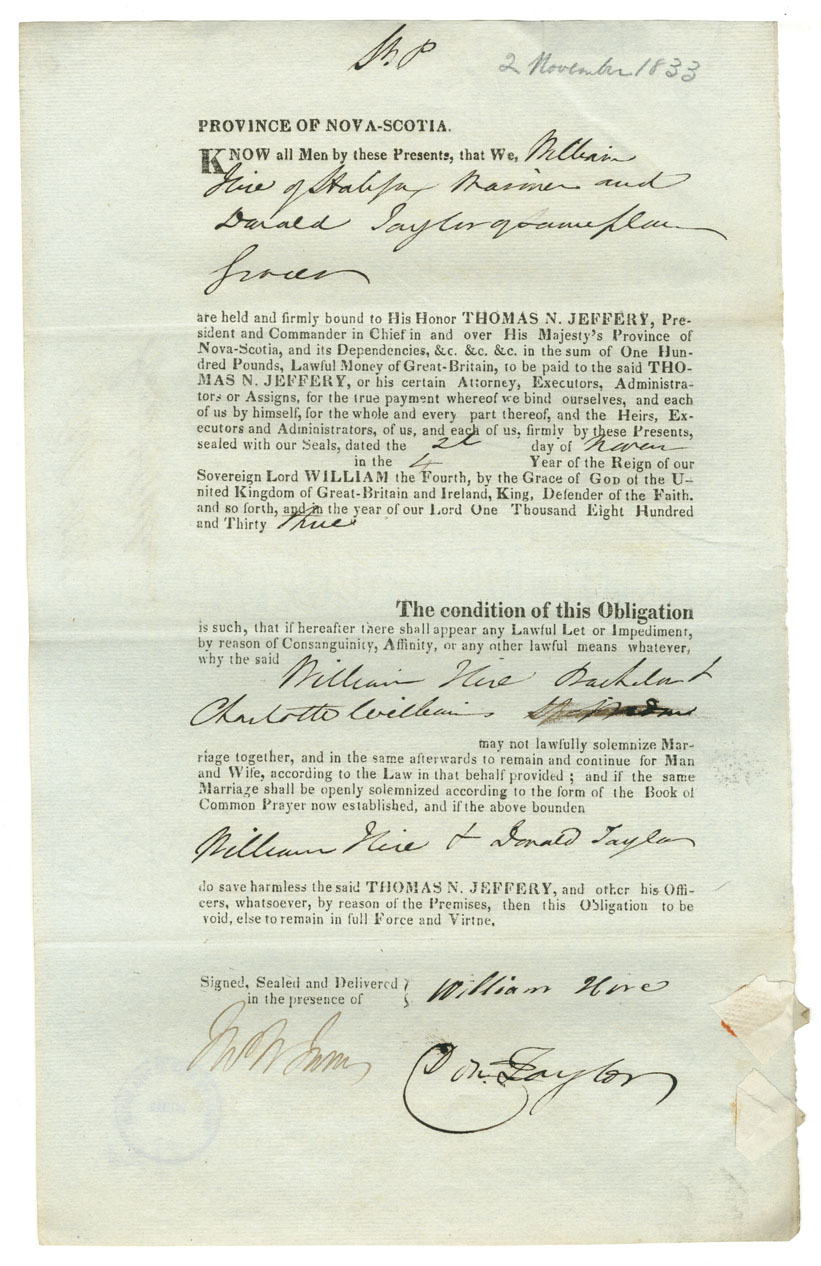 St. P
2 November 1833
PROVINCE OF NOVA-SCOTIA.
KNOW all Men by these Presents, that We, William
Hire of Halifax Mariner and
Donald Taylor of same place
Grocer
are held and firmly bound to His Honor THOMAS N. JEFFERY, Pre-
sident and Commander in Chief in and over His Majesty's Province of
Nova-Scotia, and its Dependencies, &c. &c. &c. in the sum of One Hun-
dred Pounds, Lawful Money of Great-Britain, to be paid to the said THO-
MAS N. JEFFERY, or his certain Attorney, Executors, Administra-
tors or Assigns, for the true payment whereof we bind ourselves, and each
of us by himself, for the whole and every part thereof, and the Heirs, Ex-
ecutors and Administrators, of us, and each of us, firmly by these Presents,
sealed with our Seals, dated the 2d day of Novem
in the 4 Year of the Reign of our
Sovereign Lord WILLIAM the Fourth, by the Grace of GOD of the U-
nited Kingdom of Great-Britain and Ireland, King, Defender of the Faith.
and so forth, and in the year of our Lord One Thousand Eight Hundred
and Thirty three
The condition of this Obligation
is such, that if hereafter there shall appear any Lawful Let or Impediment,
by reason of Consanguinity, Affinity, or any other lawful means whatever,
why the said
William Hire Bachelor &
Charlotte Williams
may not lawfully solemnize Mar-
riage together, and in the same afterwards to remain and continue for Man
and Wife, according to the Law in that behalf provided ; and if the same
Marriage shall be openly solemnized according to the form of the Book of
Common Prayer now established, and if the above bounden
William Hire & Donald Taylor
do save harmless the said THOMAS N. JEFFERY, and other his Offi-
cers, whatsoever, by reason of the Premises, then this Obligation to be
void, else to remain in full Force and Virtne.
Signed, Sealed and Delivered }
in the presence of
William Hire
Don. Taylor